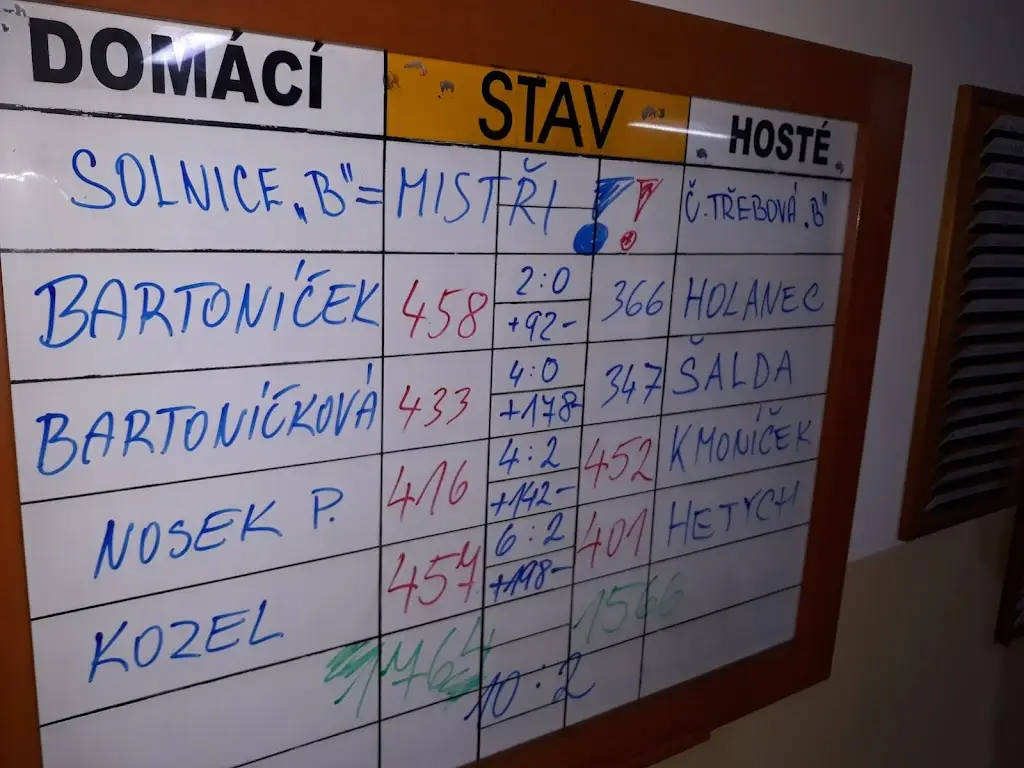 DOMÁCÍ STAV HOSTÉ
SOLNICE „B" = MISTŘI !! Č. TŘEBOVÁ „B"
BARTONÍČEK 458 2:0 366 HOLANEC
+92-
BARTONÍČKOVÁ 433 4:0 347 ŠALDA
+178-
NOSEK P. 416 4:2 452 KMONÍČEK
+142-
KOZEL 457 6:2 401 HETYCH
+198-
1764 1566
10:2